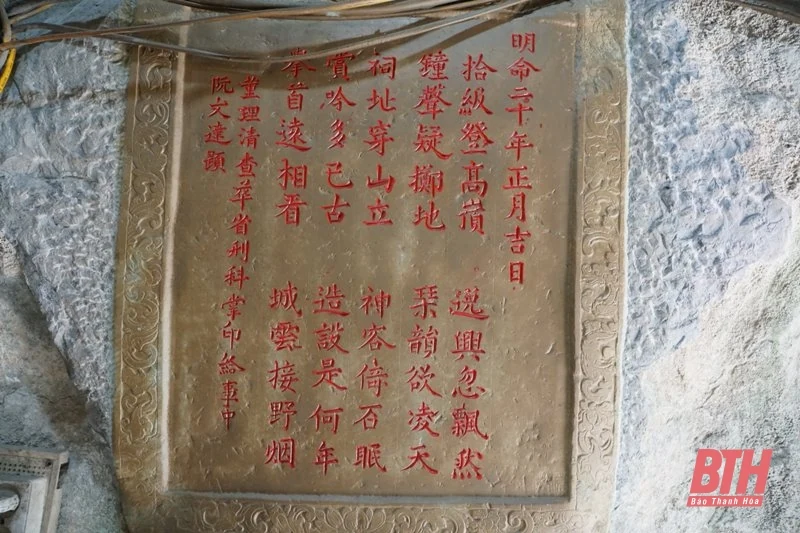 明命二十年正月吉日
拾級登高嶺 逸興忽飄然
鐘聲疑擲地 琹韻欲凌天
祠址穿山立 神容倚石眠
賞吟多已古 造設是何年
首遠相看 城雲接野烟
董理清查省刑科掌印給事中
阮文達題
BTH
Báo Thanh Hóa